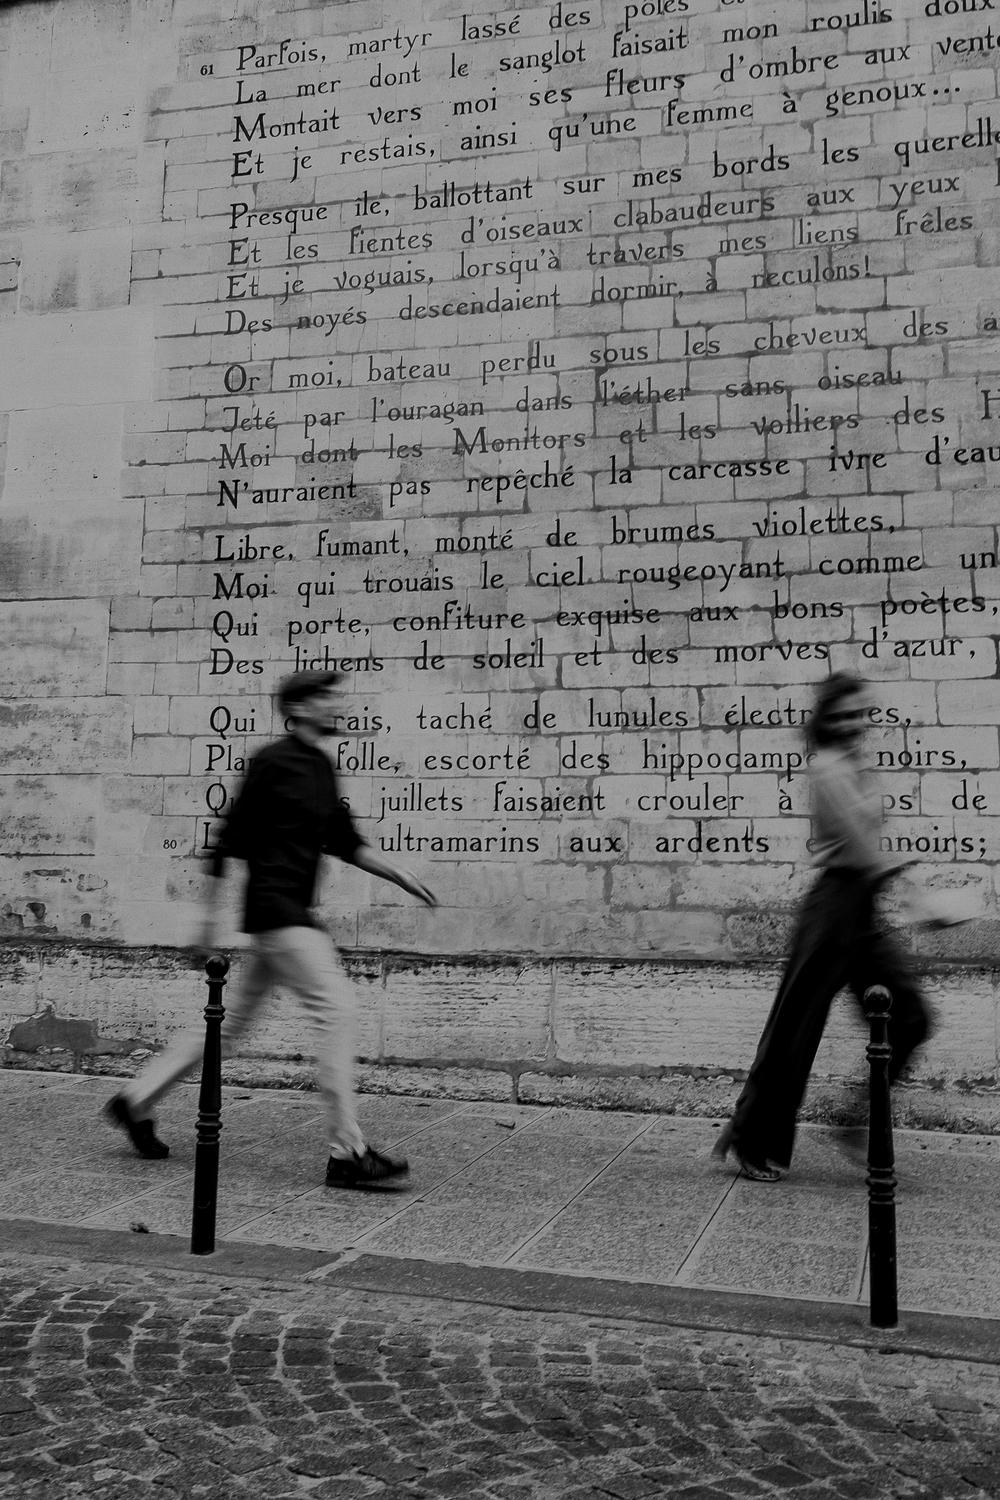 61 Parfois, martyr lassé des pôles
La mer dont le sanglot faisait mon roulis doux
Montait vers moi ses fleurs d'ombre aux
Et je restais, ainsi qu'une femme à genoux...
Presque île, ballottant sur mes bords les
Et les fientes d'oiseaux clabaudeurs aux yeux
Et je voguais, lorsqu'à travers mes liens frêles
Des noyés descendaient dormir, à reculons!
Or moi, bateau perdu sous les cheveux des
Jeté par l'ouragan dans l'éther sans oiseau
Moi dont les Monitors et les voiliers des
N'auraient pas repêché la carcasse ivre d'eau
Libre, fumant, monté de brumes violettes,
Moi qui trouais le ciel rougeoyant comme un
Qui porte, confiture exquise aux bons poètes,
Des lichens de soleil et des morves d'azur,
Qui taché de lunules
folle, escorté des noirs,
juillets faisaient crouler à de
80 ultramarins aux ardents